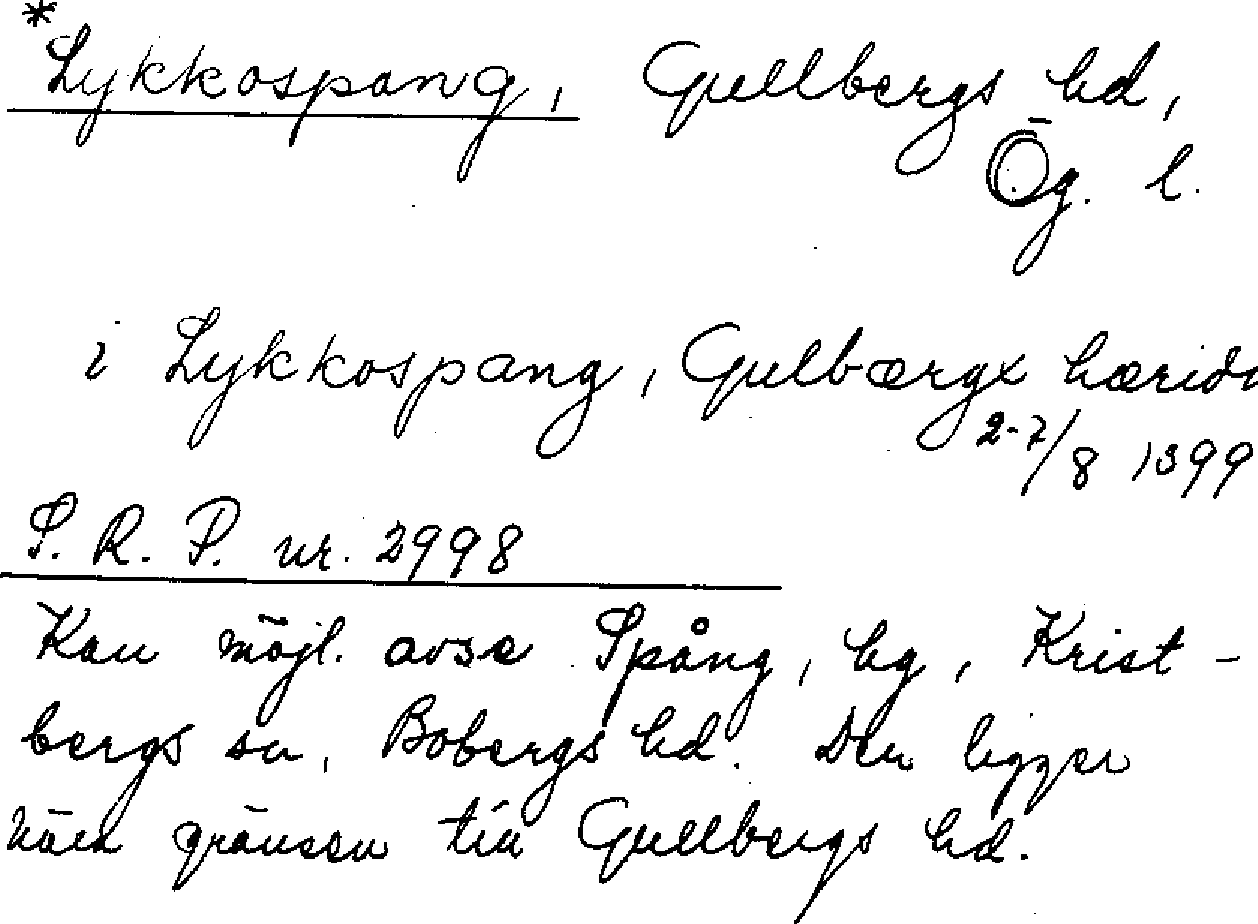 *Lykkospang, Gullbergs hd,
Ög. l.
i Lykkospang, Gulbærgx hærida
2-7/8 1399
S. R. P. nr. 2998
Kan möjl. avse Spång, hg, Krist-
bergs sn, Bobergs hd. Den ligger
nära gränsen till Gullbergs hd.